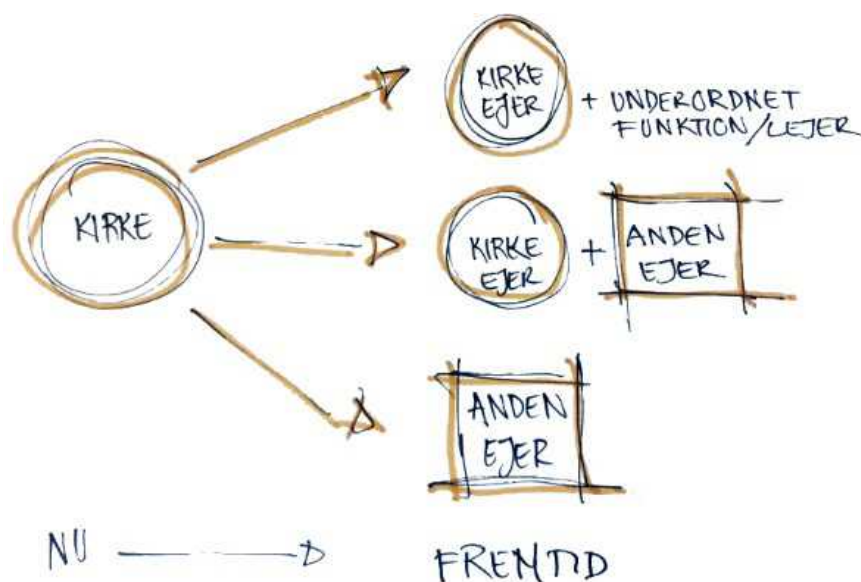 KIRKE
KIRKE
EJER
+ UNDERORDNET
FUNKTION/LEJER
KIRKE
EJER
+
ANDEN
EJER
ANDEN
EJER
NU
FREMTID